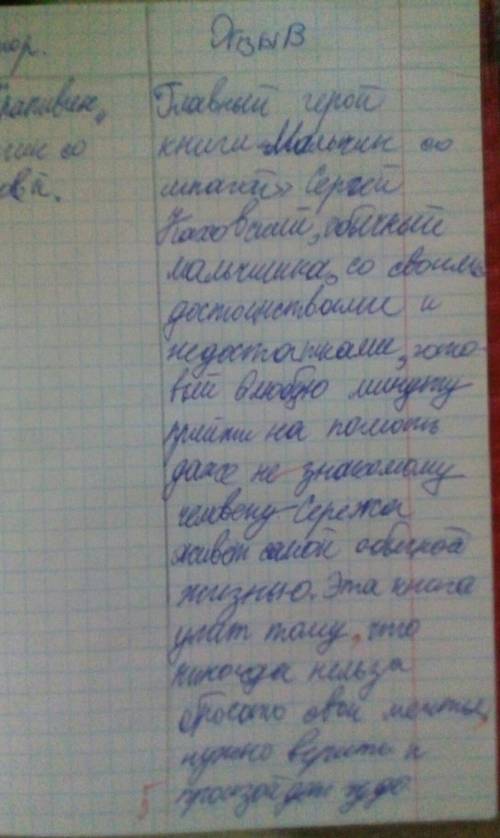 ор.
Отзыв
рапивин„
чик со
гой.
Главный герой
книги «Мальчик со
шпагой» Сергей
Каховский, обычный
мальчишка, со своими
достоинствами и
недостатками, гото-
вый в любую минуту
прийти на помощь
даже не знакомому
человеку. Сережа
живет самой обычной
жизнью. Эта книга
учит тому, что
никогда нельза
бросать свои мечты,
нужно верить и
произойдет чудо
5